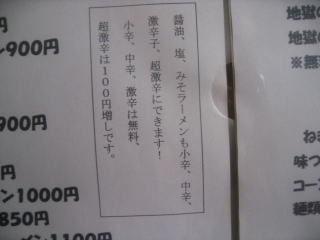 醤油、塩、みそラーメンも小辛、中辛、
激辛子、超激辛にできます!
小辛、中辛、激辛は無料、
超激辛は100円増しです。
円
900円
900円
円
ン1000円
850円
ーメン1100円
地獄の
地獄の
※無
おき
味つ
コー
麺類